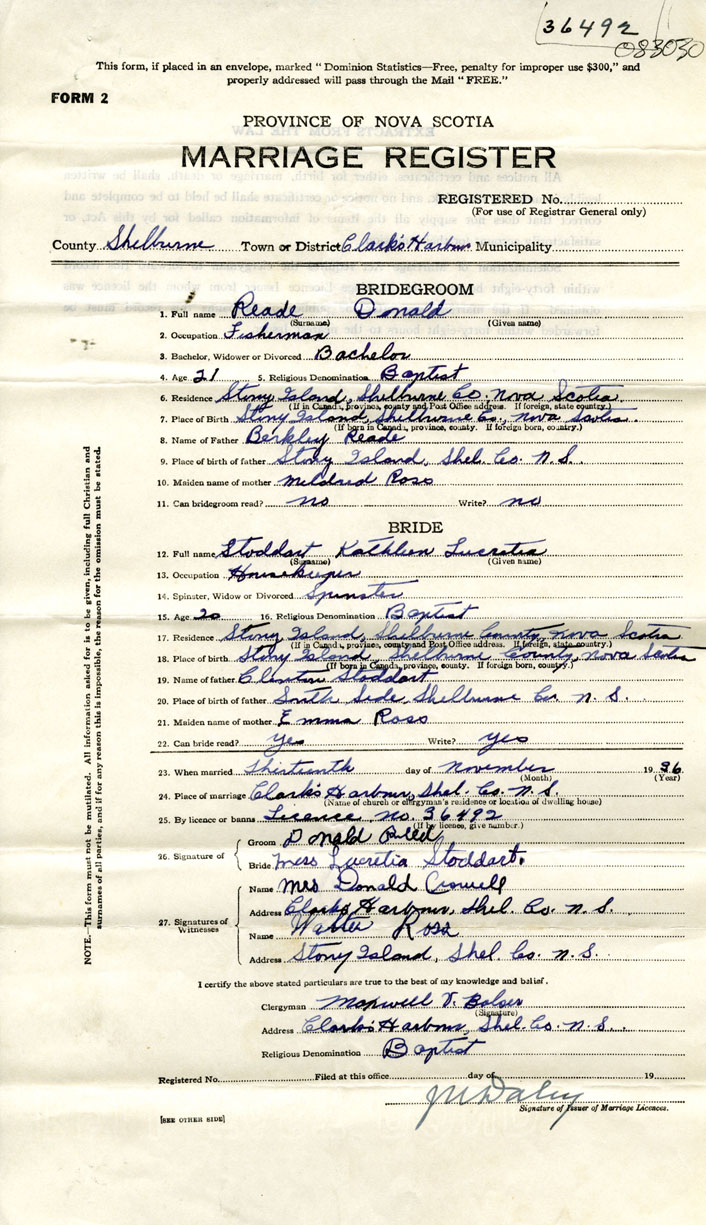 36492
083030
This form, if placed in an envelope, marked "Dominion Statistics—Free, penalty for improper use $300," and
properly addressed will pass through the Mail "FREE."
FORM 2
PROVINCE OF NOVA SCOTIA
MARRIAGE REGISTER
REGISTERED No.
(For use of Registrar General only)
County Shelburne Town or District Clark's Harbour Municipality
BRIDEGROOM
1. Full name Reade Donald
(Surname) (Given name)
2. Occupation Fisherman
3. Bachelor, Widower or Divorced Bachelor
4. Age 21 5. Religious Denomination Baptist
6. Residence Stony Island, Shelburne Co. Nova Scotia
(If in Canada, province, county and Post Office address. If foreign, state country.)
7. Place of Birth Stony Island, Shelburne Co., Nova Scotia
(If born in Canada, province, county. If foreign born, country.)
8. Name of Father Berkley Reade
9. Place of birth of father Stony Island, Shel. Co. N.S.
10. Maiden name of mother Mildred Ross
11. Can bridegroom read? no Write? no
BRIDE
12. Full name Stoddart Kathleen Lucretia
(Surname) (Given name)
13. Occupation Housekeeper
14. Spinster, Widow or Divorced Spinster
15. Age 20 16. Religious Denomination Baptist
17. Residence Stony Island, Shelburne County, Nova Scotia
(If in Canada, province, county and Post Office address. If foreign, state country.)
18. Place of birth Stony Island, Shelburne County, Nova Scotia
(If born in Canada, province, county. If foreign born, country.)
19. Name of father Clinton Stoddart
20. Place of birth of father South Side, Shelburne Co. N.S.
21. Maiden name of mother Emma Ross
22. Can bride read? yes Write? yes
23. When married Thirteenth day of November 1936
(Month) (Year)
24. Place of marriage Clark's Harbour, Shel. Co. N.S.
(Name of church or clergyman's residence or location of dwelling house)
25. By licence or banns Licence no. 36492
(If by licence, give number.)
26. Signature of
Groom Donald Reed
Bride Miss Lucretia Stoddart.
27. Signatures of Witnesses
Name Mrs Donald Crowell
Address Clarks Harbour, Shel. Co. N.S.
Name Walter Ross
Address Stony Island, Shel. Co. N.S.
I certify the above stated particulars are true to the best of my knowledge and belief.
Clergyman Maxwell V. Bolser
(Signature)
Address Clark's Harbour, Shel. Co. N.S.
Religious Denomination Baptist
Registered No. Filed at this office day of 19
Signature of Issuer of Marriage Licences.
[SEE OTHER SIDE]
NOTE.—This form must not be mutilated. All information asked for is to be given, including full Christian and
surnames of all parties, and if for any reason this is impossible, the reason for the omission must be stated.